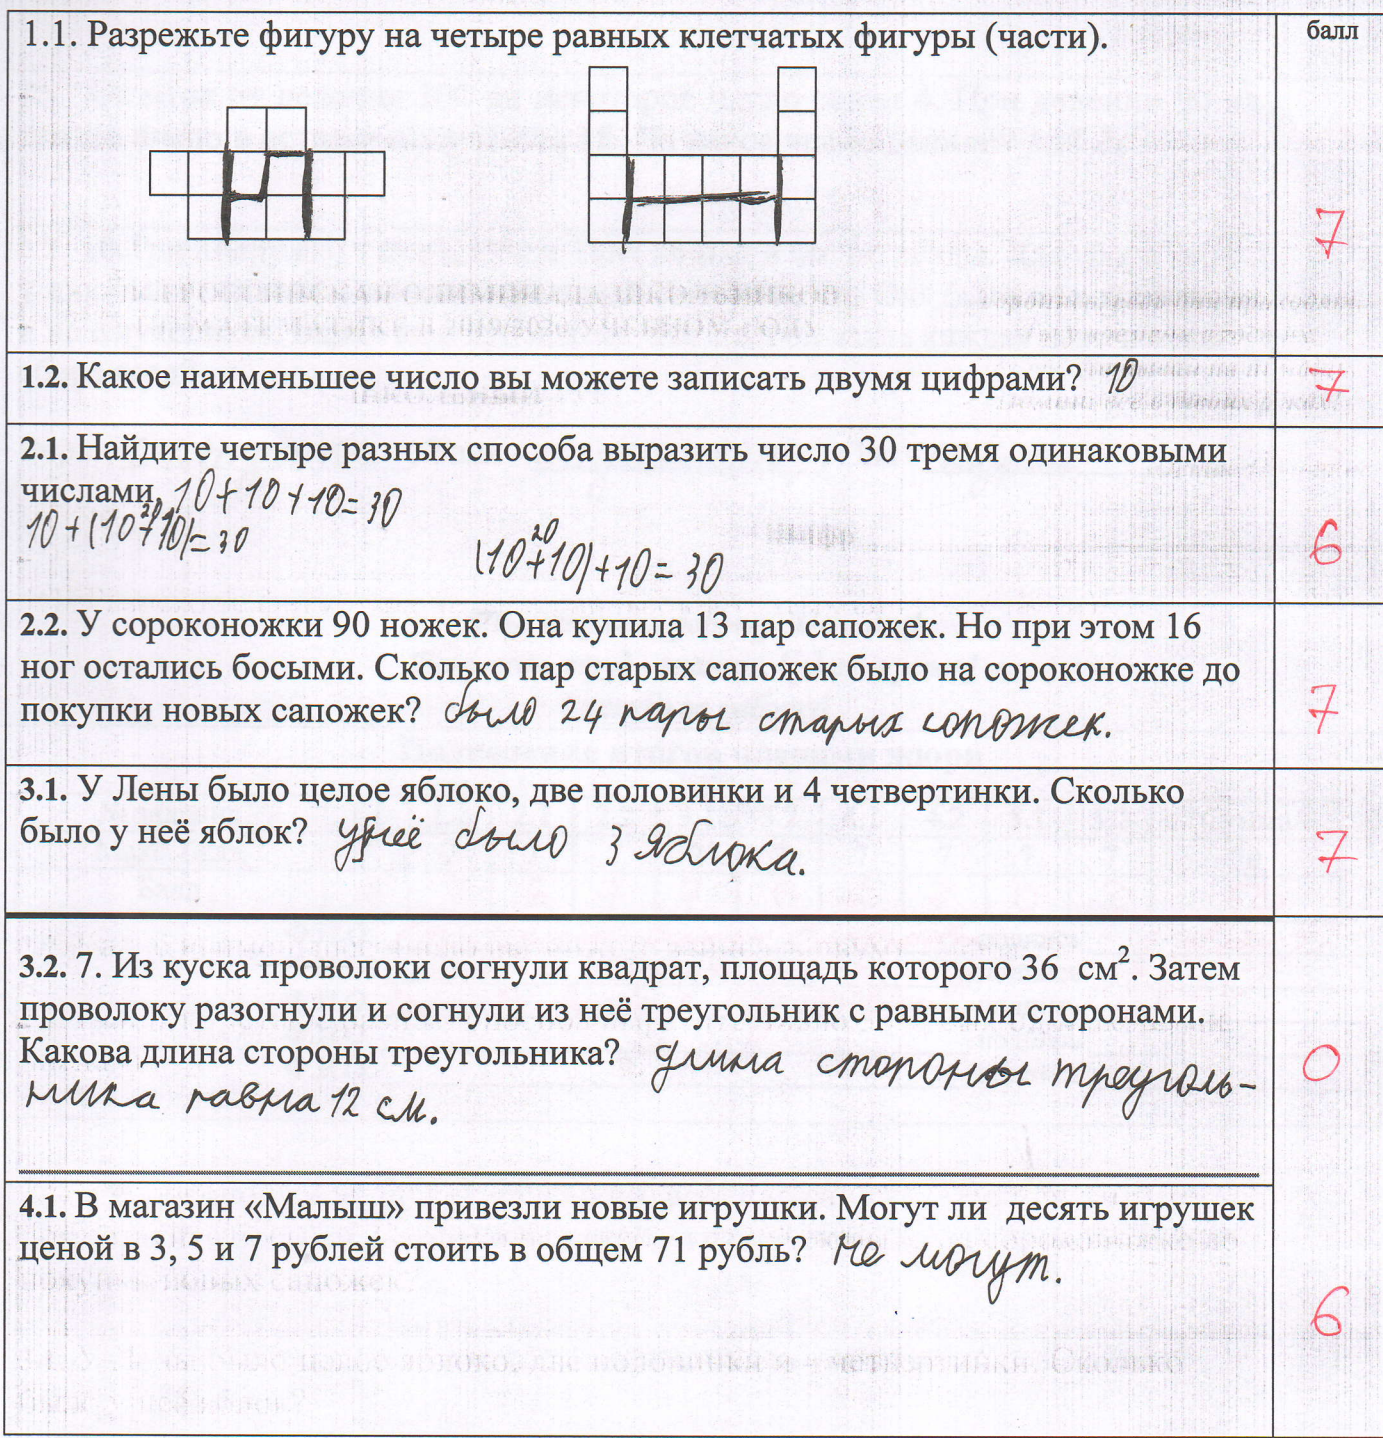 1.1. Разрежьте фигуру на четыре равных клетчатых фигуры (части).
балл
7
1.2. Какое наименьшее число вы можете записать двумя цифрами? 10
7
2.1. Найдите четыре разных способа выразить число 30 тремя одинаковыми
числами. 10+10+10=30
20
10+(10+10)=30
20
(10+10)+10=30
6
2.2. У сороконожки 90 ножек. Она купила 13 пар сапожек. Но при этом 16
ног остались босыми. Сколько пар старых сапожек было на сороконожке до
покупки новых сапожек? было 24 пары старых сопожек.
7
3.1. У Лены было целое яблоко, две половинки и 4 четвертинки. Сколько
было у неё яблок? у неё было 3 яблока.
7
3.2. 7. Из куска проволоки согнули квадрат, площадь которого 36 см². Затем
проволоку разогнули и согнули из неё треугольник с равными сторонами.
Какова длина стороны треугольника? длина стороны треуголь-
ника равна 12 см.
0
4.1. В магазин «Малыш» привезли новые игрушки. Могут ли десять игрушек
ценой в 3, 5 и 7 рублей стоить в общем 71 рубль? Не могут.
6